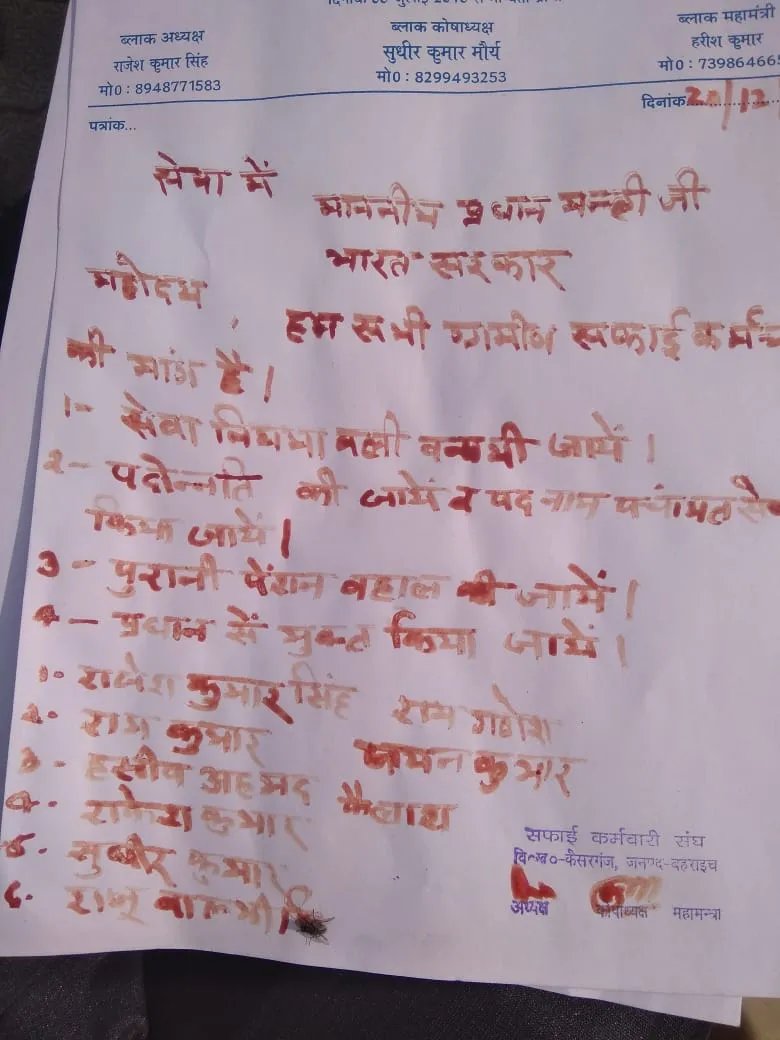 ब्लाक अध्यक्ष
राजेश कुमार सिंह
मो0 : 8948771583
ब्लाक कोषाध्यक्ष
सुधीर कुमार मौर्य
मो0 : 8299493253
ब्लाक महामंत्री
हरीश कुमार
मो0 : 739864665
दिनांक 20/12
पत्रांक...
सेवा में
माननीय प्रधान मन्त्री जी
भारत सरकार
महोदय
हम सभी ग्रामीण सफाई कर्मच
की मांग है।
1- सेवा नियमावली बनायी जायें।
2- पदोन्नति की जायें व पद नाम पंचायत सेव
किया जायें।
3- पुरानी पेंशन बहाल की जायें।
4- प्रधान से मुक्त किया जायें।
1- राजेश कुमार सिंह राम गणेश
2- राम कुमार जमन कुमार
3- हसीब अहमद कैलाश
4- राकेश कुमार
5- सुधीर कुमार
6- राजू वाल्मीकि
सफाई कर्मचारी संघ
वि०ख०-कैसरगंज, जनपद-बहराइच
अध्यक्ष कोषाध्यक्ष महामन्त्री